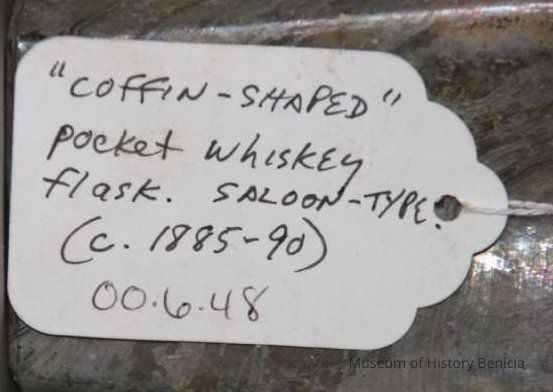 "COFFIN-SHAPED"
pocket whiskey
flask. SALOON-TYPE.
(c. 1885-90)
00.6.48
Museum of History Benicia